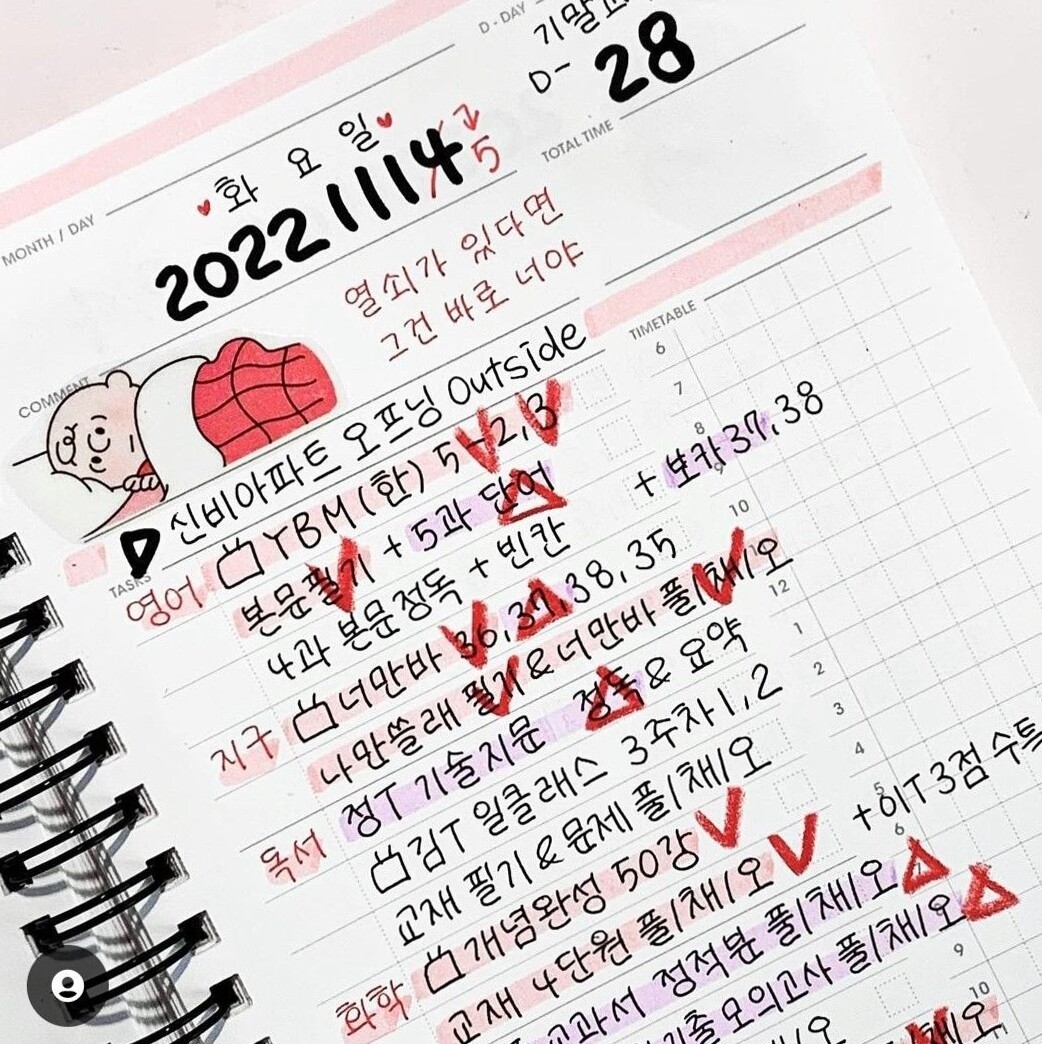 D-DAY 기말
D- 28
MONTH / DAY 화요일
20221114 5
TOTAL TIME
열쇠가 있다면
그건 바로 너야
COMMENT
신비아파트 오프닝 Outside
TIMETABLE
TASKS
영어 YBM(한) 5-2,3
본문필기 + 5과 단어 + 보카 37,38
4과 본문정독 + 빈칸
지구 너만바 36,37,38,35
나만쓸래 필기 & 너만바 풀/채/오
독서 정T 기술지문 정독 & 요약
김T 일클래스 3주차 1,2
교재 필기 & 문제 풀/채/오
화학 개념완성 50강
교재 4단원 풀/채/오 + 이T 3점 수특
교과서 정적분 풀/채/오
기출모의고사 풀/채/오
6
7
8
9
10
12
1
2
3
4
5
6
9
10